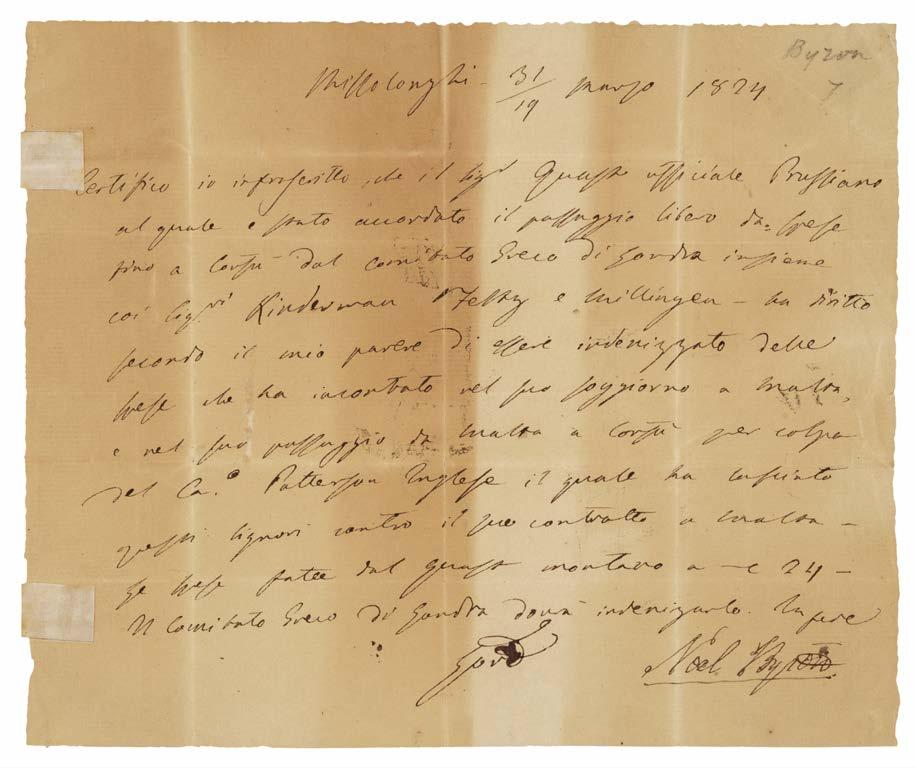 Byron
7
Missolonghi - 31/19 Marzo 1824
Certifico io infrascritto, che il Sigr Quass ufficiale Prussiano
al quale e stato accordato il passaggio libero da spese
fino a Corfù dal comitato Greco di Londra insieme
coi Sigri Kinderman Fels y e Millingen - ha diritto
secondo il mio parere di essere indenizzato delle
spese che ha incontrato nel suo soggiorno a Malta,
e nel suo passaggio da Malta a Corfù per colpa
del Cao Patterson Inglese il quale ha lasciato
questi Signori contro il suo contratto a Malta -
Le spese fatte dal Quass montano a 24 -
Il Comitato Greco di Londra dovrà indenizarlo. In fede
Lord Noel Byron